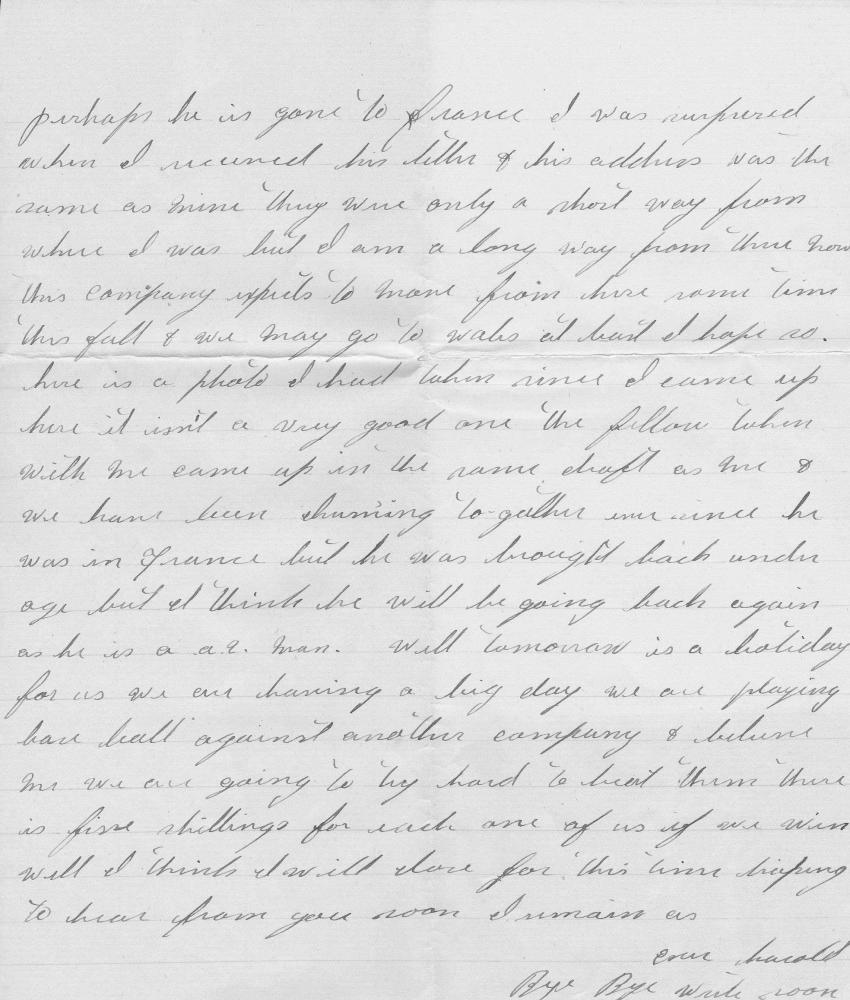 perhaps he is gone to France I was surprised
when I received his letter & his address was the
same as mine they were only a short way from
where I was but I am a long way from there now
this company expects to move from here some time
this fall & we may go to wales at least I hope so.
here is a photo I had taken since I came up
here it isn't a very good one the fellow taken
with me came up in the same draft as me &
we have been chuming to-gether ever since he
was in France but he was brought back under
age but I think he will be going back again
as he is a a.2. man. Well tomorrow is a holiday
for us we are having a big day we are playing
base ball against another company & believe
me we are going to try hard to beat them there
is five shillings for each one of us if we win
well I think I will close for this time hoping
to hear from you soon I remain as
ever harold
Bye Bye write soon